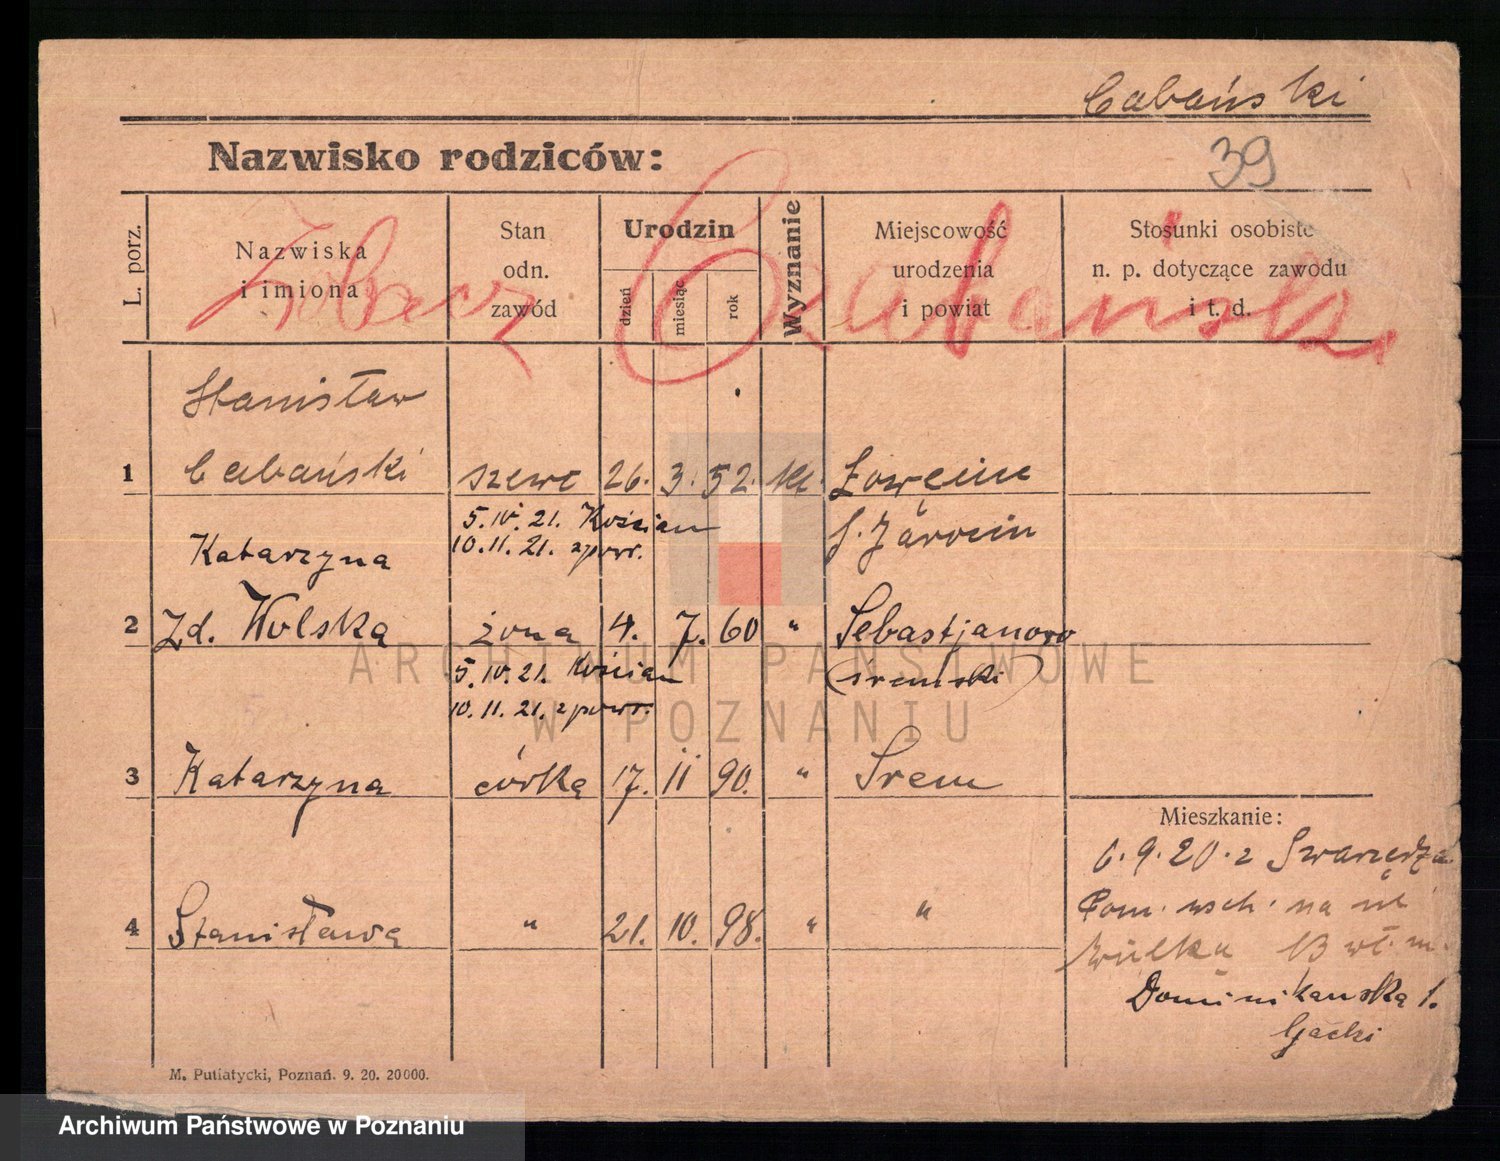 Cabański
Nazwisko rodziców:
39
L. porz.
Nazwiska
i imiona
Stan
odn.
zawód
Urodzin
dzień
miesiąc
rok
Wyznanie
Miejscowość
urodzenia
i powiat
Stosunki osobiste
n. p. dotyczące zawodu
i t. d.
Zobacz Czabański
Stanisław
1 Cabański szewc 26. 3. 52. kt.
5.IV.21. Kościan J. Jarocin
10.11.21. z powr.
Katarzyna
2 Zd. Wolska żona 4. 7. 60 " Sebastjanowo
5.IV.21. Kościan (śremski)
10.11.21. z powr.
3 Katarzyna córka 17. 11 90. " Śrem
Mieszkanie:
6.9.20. z Swarzędza
4 Stanisława " 21. 10. 98. " "
Wielka 13
Dominikańska 1.
Gacki
M. Putiatycki, Poznań. 9. 20. 20000.
ARCHIWUM PAŃSTWOWE
W POZNANIU
Archiwum Państwowe w Poznaniu